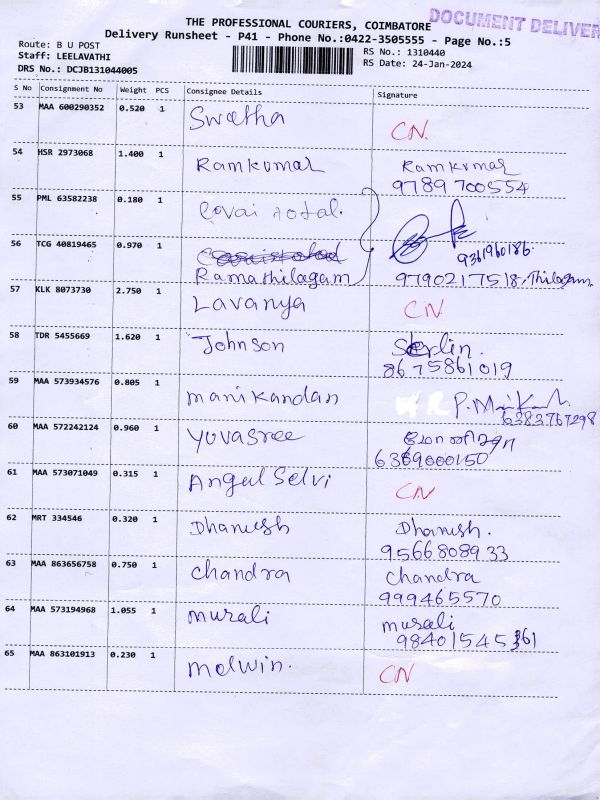 DOCUMENT DELIVER
THE PROFESSIONAL COURIERS, COIMBATORE
Delivery Runsheet - P41 - Phone No.:0422-3505555 - Page No.:5
Route: B U POST
Staff: LEELAVATHI
DRS No.: DCJB131044005
RS No.: 1310440
RS Date: 24-Jan-2024
S No Consignment No Weight PCS Consignee Details Signature
53 MAA 600290352 0.520 1 Swetha CN
54 HSR 2973068 1.400 1 Ramkumar Ramkumar
9789700554
55 PML 63582238 0.180 1 Covai total
56 TCG 40819465 0.970 1 9361960186.
Ramathilagam 9790217518, Thilagam
57 KLK 8073730 2.750 1 Lavanya CN
58 TDR 5455669 1.620 1 Johnson
8675861019
59 MAA 573934576 0.805 1 manikandan
6383767298
60 MAA 572242124 0.960 1 Yuvasree
6369000150
61 MAA 573071049 0.315 1 Angul Selvi CN
62 MRT 334546 0.320 1 Dhanush Dhanush.
9566808933
63 MAA 863656758 0.750 1 chandra chandra
999465570
64 MAA 573194968 1.055 1 murali murali
65 MAA 863101913 0.230 1 melwin. CN